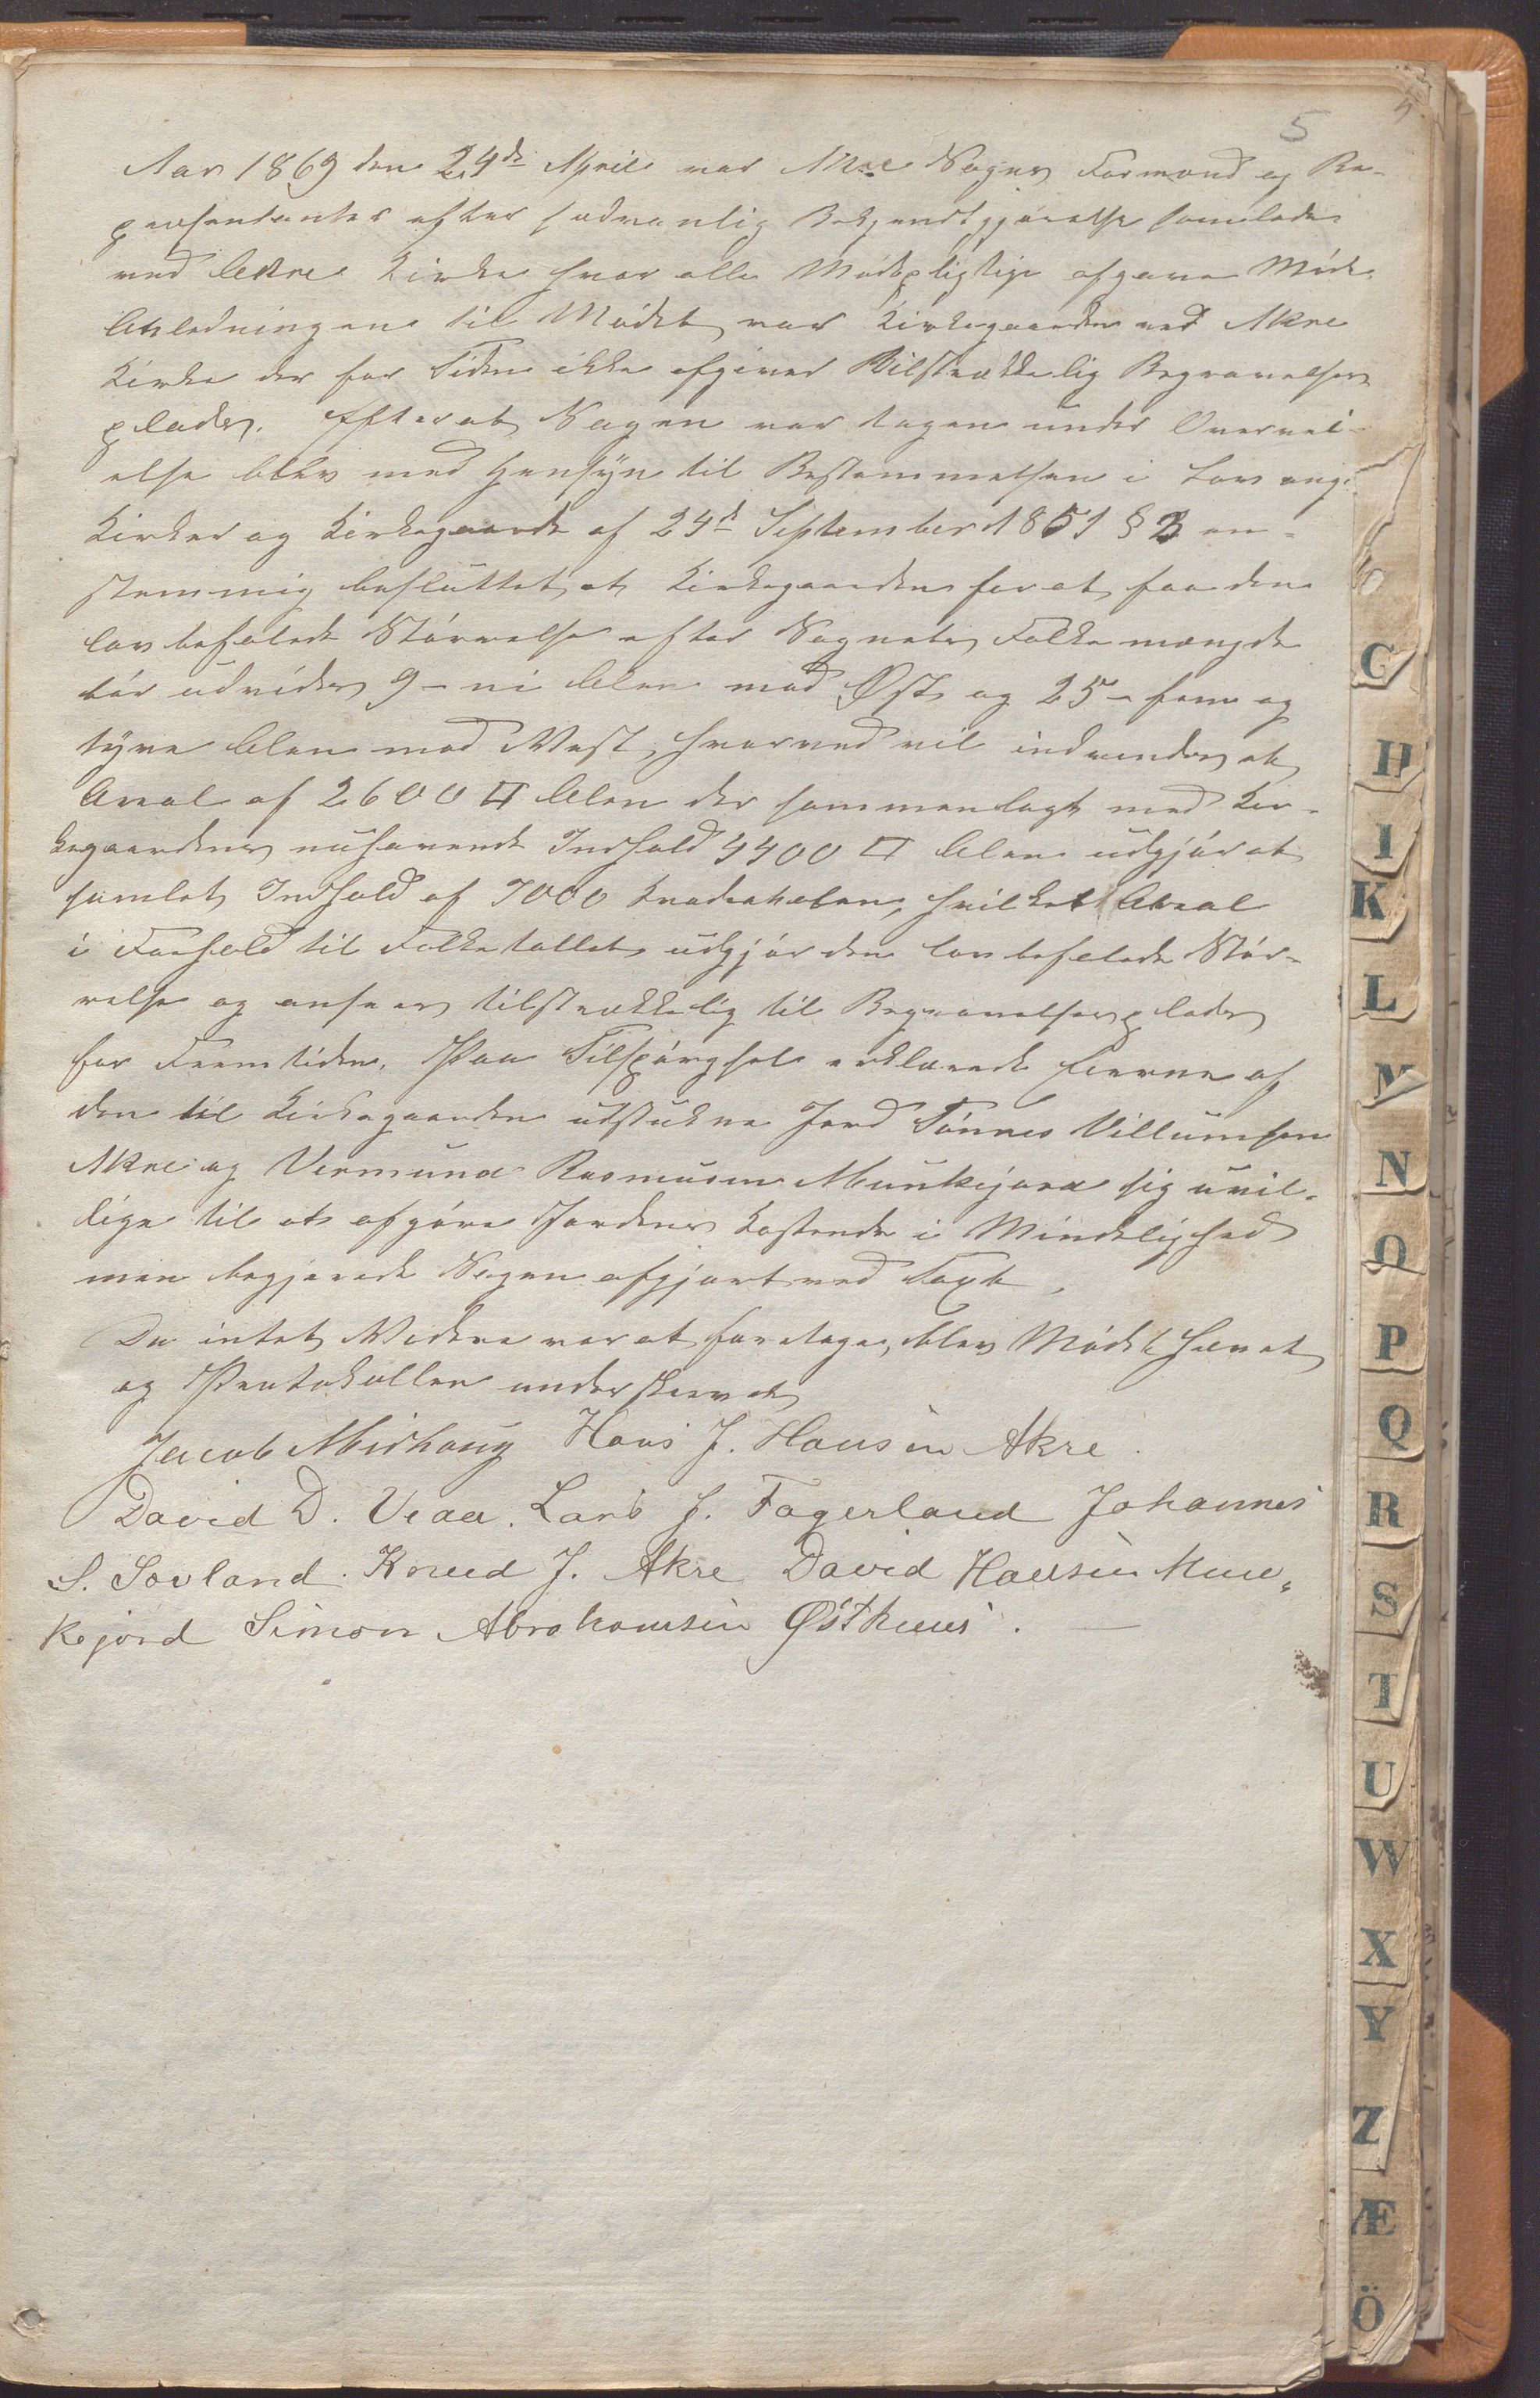 5
Aar 1869 den 24de April var Akre Sogns Formænd og Re-
præsentanter efter sædvanlig Bekjendtgjørelse samlede
ved Akre Kirke hvor alle Mødepligtige afgave Møde.
Anledningen til Mødet var Kirkegaarden ved Akre
Kirke der for Tiden ikke afgiver tilstrækkelig Begravelses
plads. Efterat Sagen var tagen under Overvei-
else blev med Hensyn til Bestemmelsen i Lov ang.
Kirker og Kirkegaarde af 24de September 1851 § 3 en-
stemmig besluttet at Kirkegaarden for at faa den
lovbefalede Størrelse efter Sognets Folkemængde
bør udvides 9 - ni Alen mod Øst og 25 - fem og
tyve Alen mod Vest, hvorved vil indvendes et
Areal af 2600 □ Alen der sammenlagt med Kir-
kegaardens nuhavende Indhold 4400 □ Alen udgjør et
samlet Indhold af 7000 Kvadratalen, hvilket Areal
i Forhold til Folketallet udgjør den lovbefalede Stør-
relse og ansees tilstrækkelig til Begravelsesplads
for Fremtiden. Paa Tilspørgsel erklærede Eierne af
den til Kirkegaarden udstukne Jord Tønnes Villumsen
Akre og Vermund Rasmusen Munkejord sig uvil-
lige til at afgjøre Jordens Kostende i Mindelighed
men begjærede Sagen afgjort ved Taxt.
Da intet Videre var at foretage, blev Mødet hævet
og Protokollen underskrevet
Jacob Mirhaug Hans J. Hansen Akre.
David D. Veaa. Lars J. Fagerland Johannes
S. Sørland. Knud J. Akre David Hansen Mun„
kejord Simon Abrahamsen Østhuus. —
G
H
I
K
L
M
N
O
P
Q
R
S
T
U
W
X
Y
Z
Æ
Ö